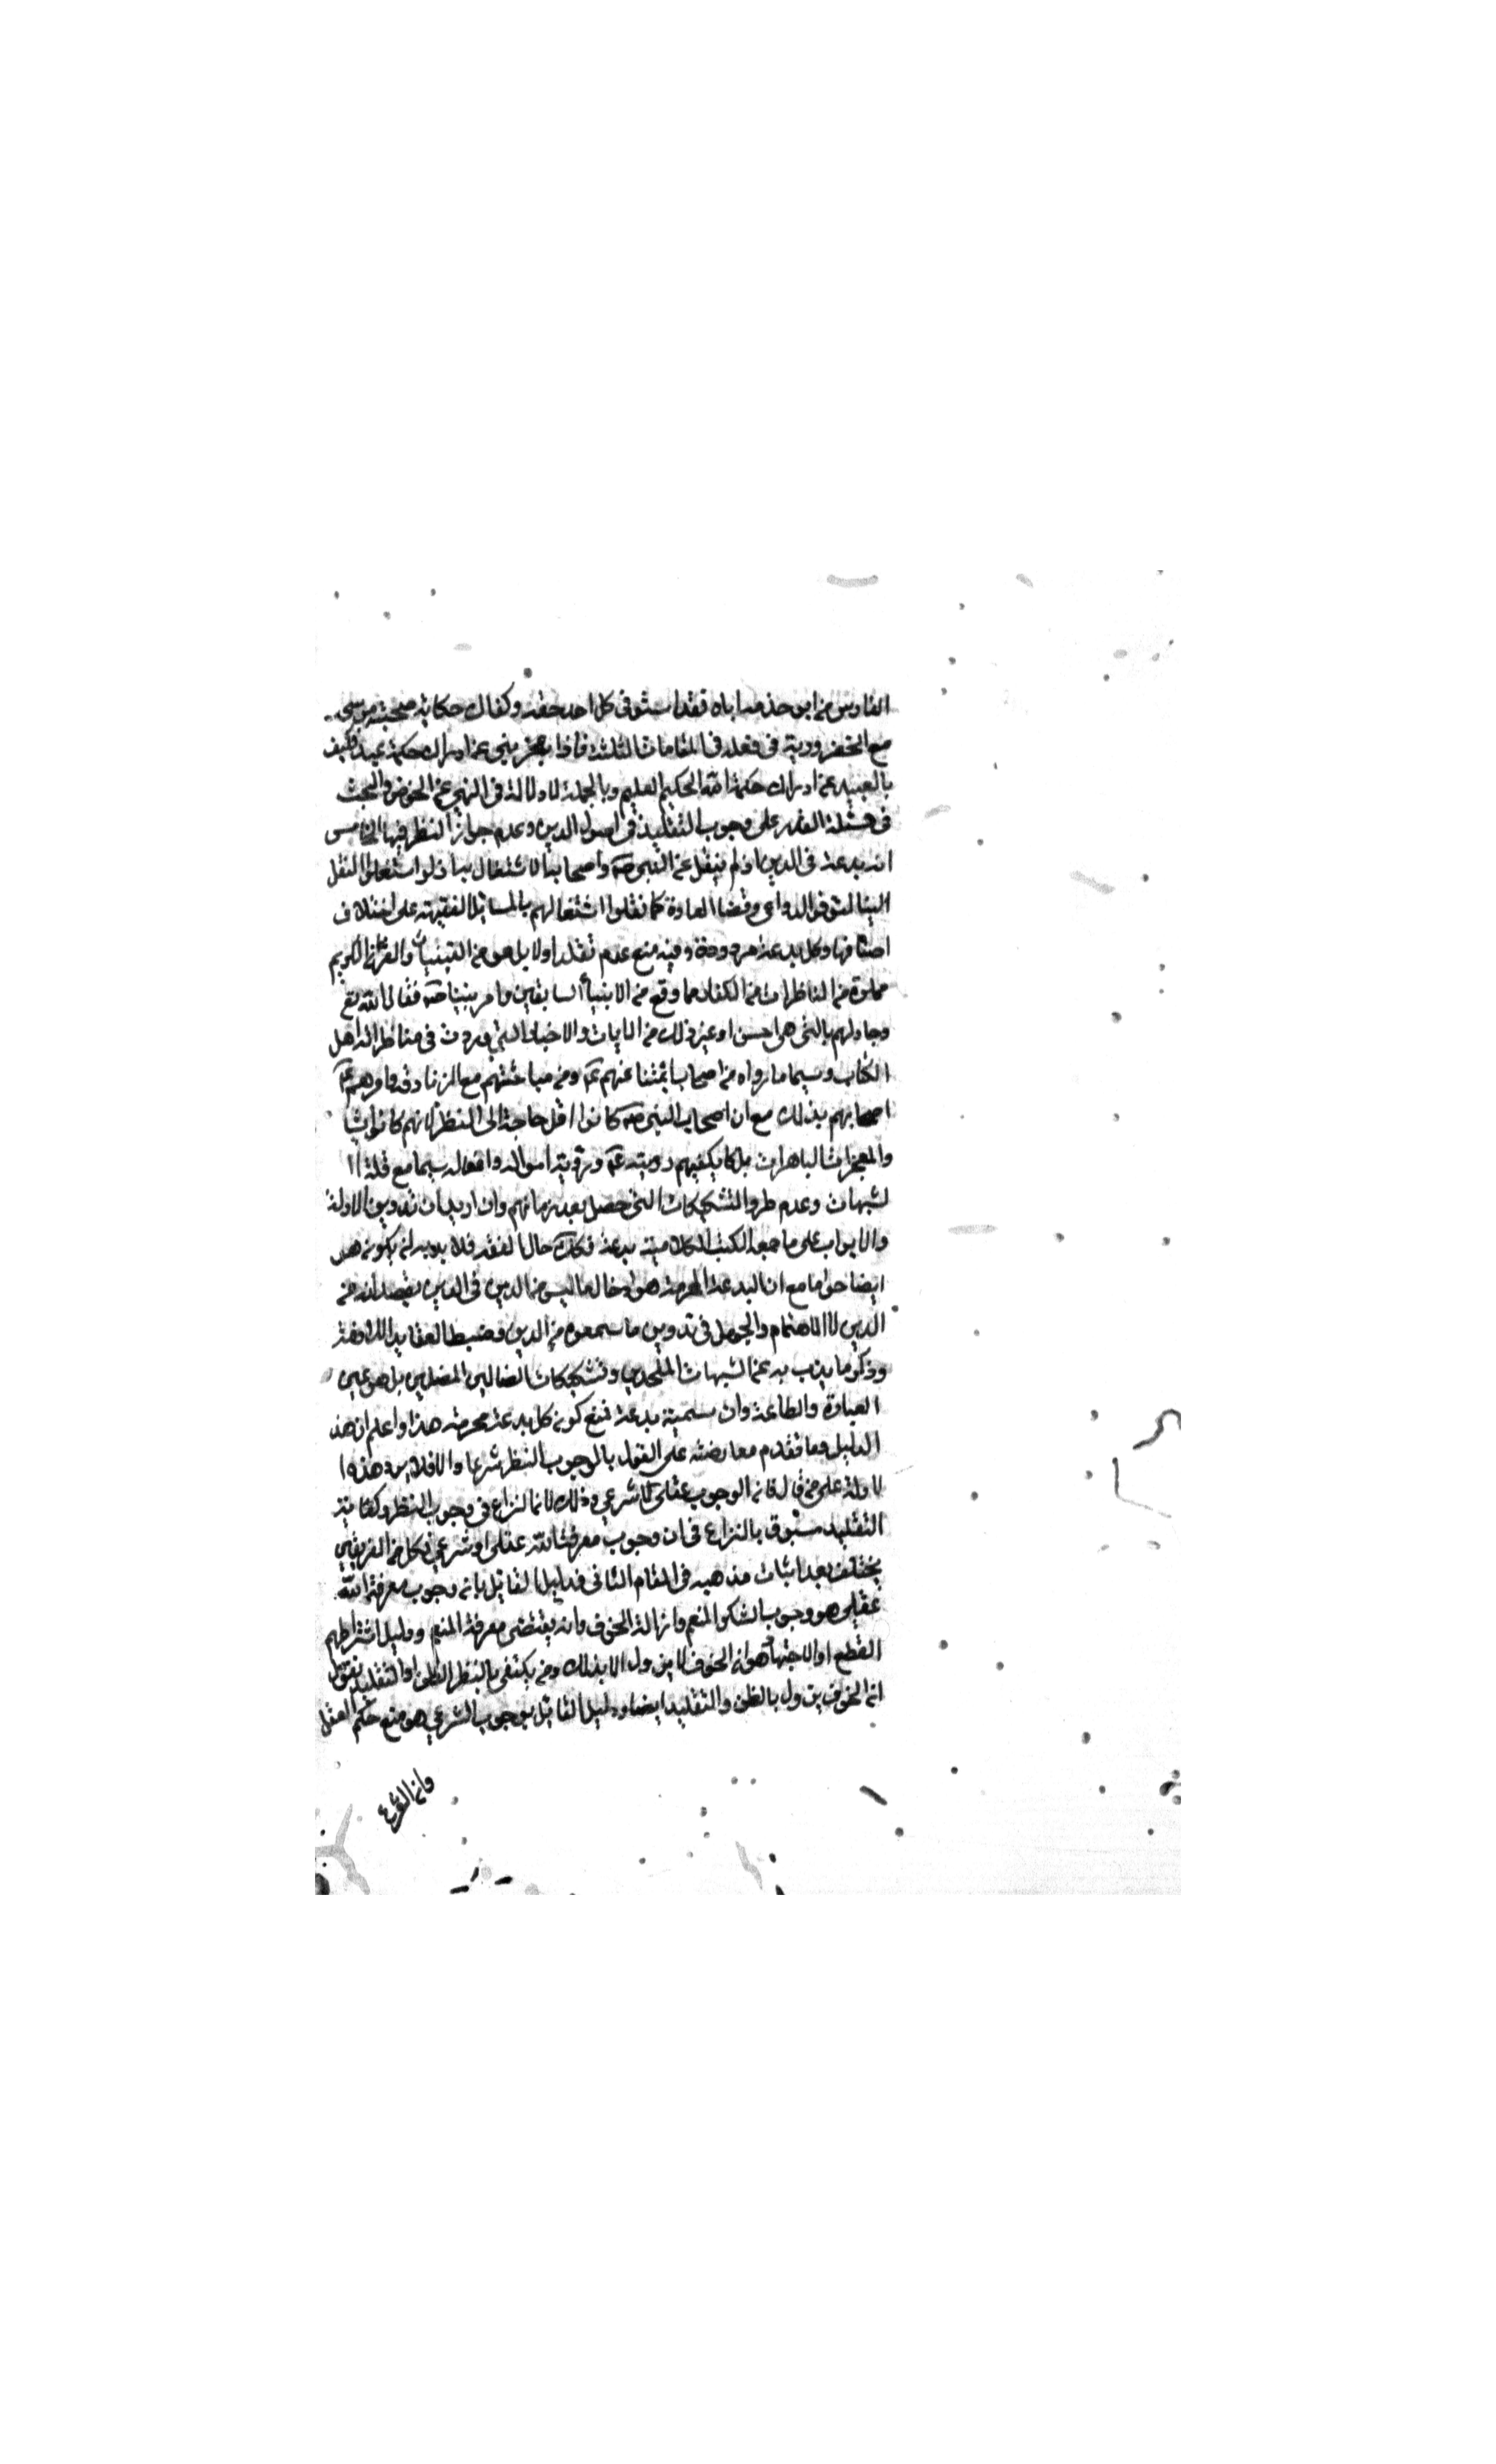 الفارس من ابن حذمه اباه فقد استوفى كل احد حقه وكفاك حكاية صحبة موسى
مع الخضر ورويته فى فعله فى المقامات الثلثة فاذا عجز بنى عن ادراك حكمة عبد فكيف
بالعبيد عن ادراك حكمة الله الحكيم العليم وبالجملة لا دلالة فى النهى عن الخوض والبحث
فى مسئلة القدر على وجوب التقليد فى اصول الدين وعدم جواز النظر فيها الخامس
انه بدعة فى الدين اذ لم ينقل عن النبى صه واصحابه الاشتغال بها اذ لو اشتغلوا لنقل
الينا لتوفر الدواعى وقضا العادة كما نقلوا اشتغالهم بالمسايل الفقهية على اختلاف
اصنافها وكل بدعة مردودة وفيه منع عدم نقله اولا بل هو من اليقينيات والقرآن الكريم
مملوة من المناظرات من الكفار مما وقع من الانبيأ السابقين وامر نبينا صه فقال الله تع
وجادلهم بالتى هى احسن او غير ذلك من الايات والاخبار التى وردت فى مناظراته اهل
الكتاب وسيما ما رواه من اصحاب ائمتنا عنهم عم ومن مباحثتهم مع الزنادقة وامرهم عم
اصحابهم بذلك مع ان اصحاب النبى صه كانوا اقل حاجة الى النظر لانهم كانوا
والمعجزات الباهرات بل كان يكفيهم رويته عم ورؤية احواله وافعاله سيما مع قلة ا
لشبهات وعدم طرو التشكيكات التى حصل بعد زمانهم وان اريد ان تدوين الادلة
والابواب على ما جمعه الكتب الكلامية بدعة فكك حال الفقه فلا بد به لن يكون هـ
ايضا حراما مع ان البدعة المحرمة هو ادخال ما ليس من الدين فى الدين بقصد انه من
الدين لا الاهتمام والجهد فى تدوين ما سمعوه من الدين وضبط العقايد الحقة
وذكر ما يذب به عنها شبهات الملحدين وتشكيكات الضالين المضلين بل هو عين
العبادة والطاعة وان سميته بدعة فنمنع كون كل بدعة محرمة هذا واعلم ان هذ
الدليل وما تقدم معارضة على القول بالوجوب النظر شرعا والا فلا يرد هذه ا
لادلة على من قال فان الوجوب عقلى لا شرعي وذلك لان النزاع فى وجوب النظر وكفاية
التقليد مسبوق بالنزاع فى ان وجوب معرفة الله عقلى او شرعي فكل من الفريقين
يختلف بعد اثبات مذهبه فى المقام الثانى فدليل القايل بان وجوب معرفة الله
عقلى هو وجوب الشكر المنعم وازالة الخوف وانه يقتضى معرفة المنعم ودليل اشتراطهم
القطع او الاجتهاد هو ان الخوف لا يزول الا بذلك ومن يكتفى بالنظر الظن او التقليد يقول
ان الخوف يزول بالظن والتقليد ايضا ودليل القايل بوجوب الشرعي هو منع حكم العقل
وان الشرع